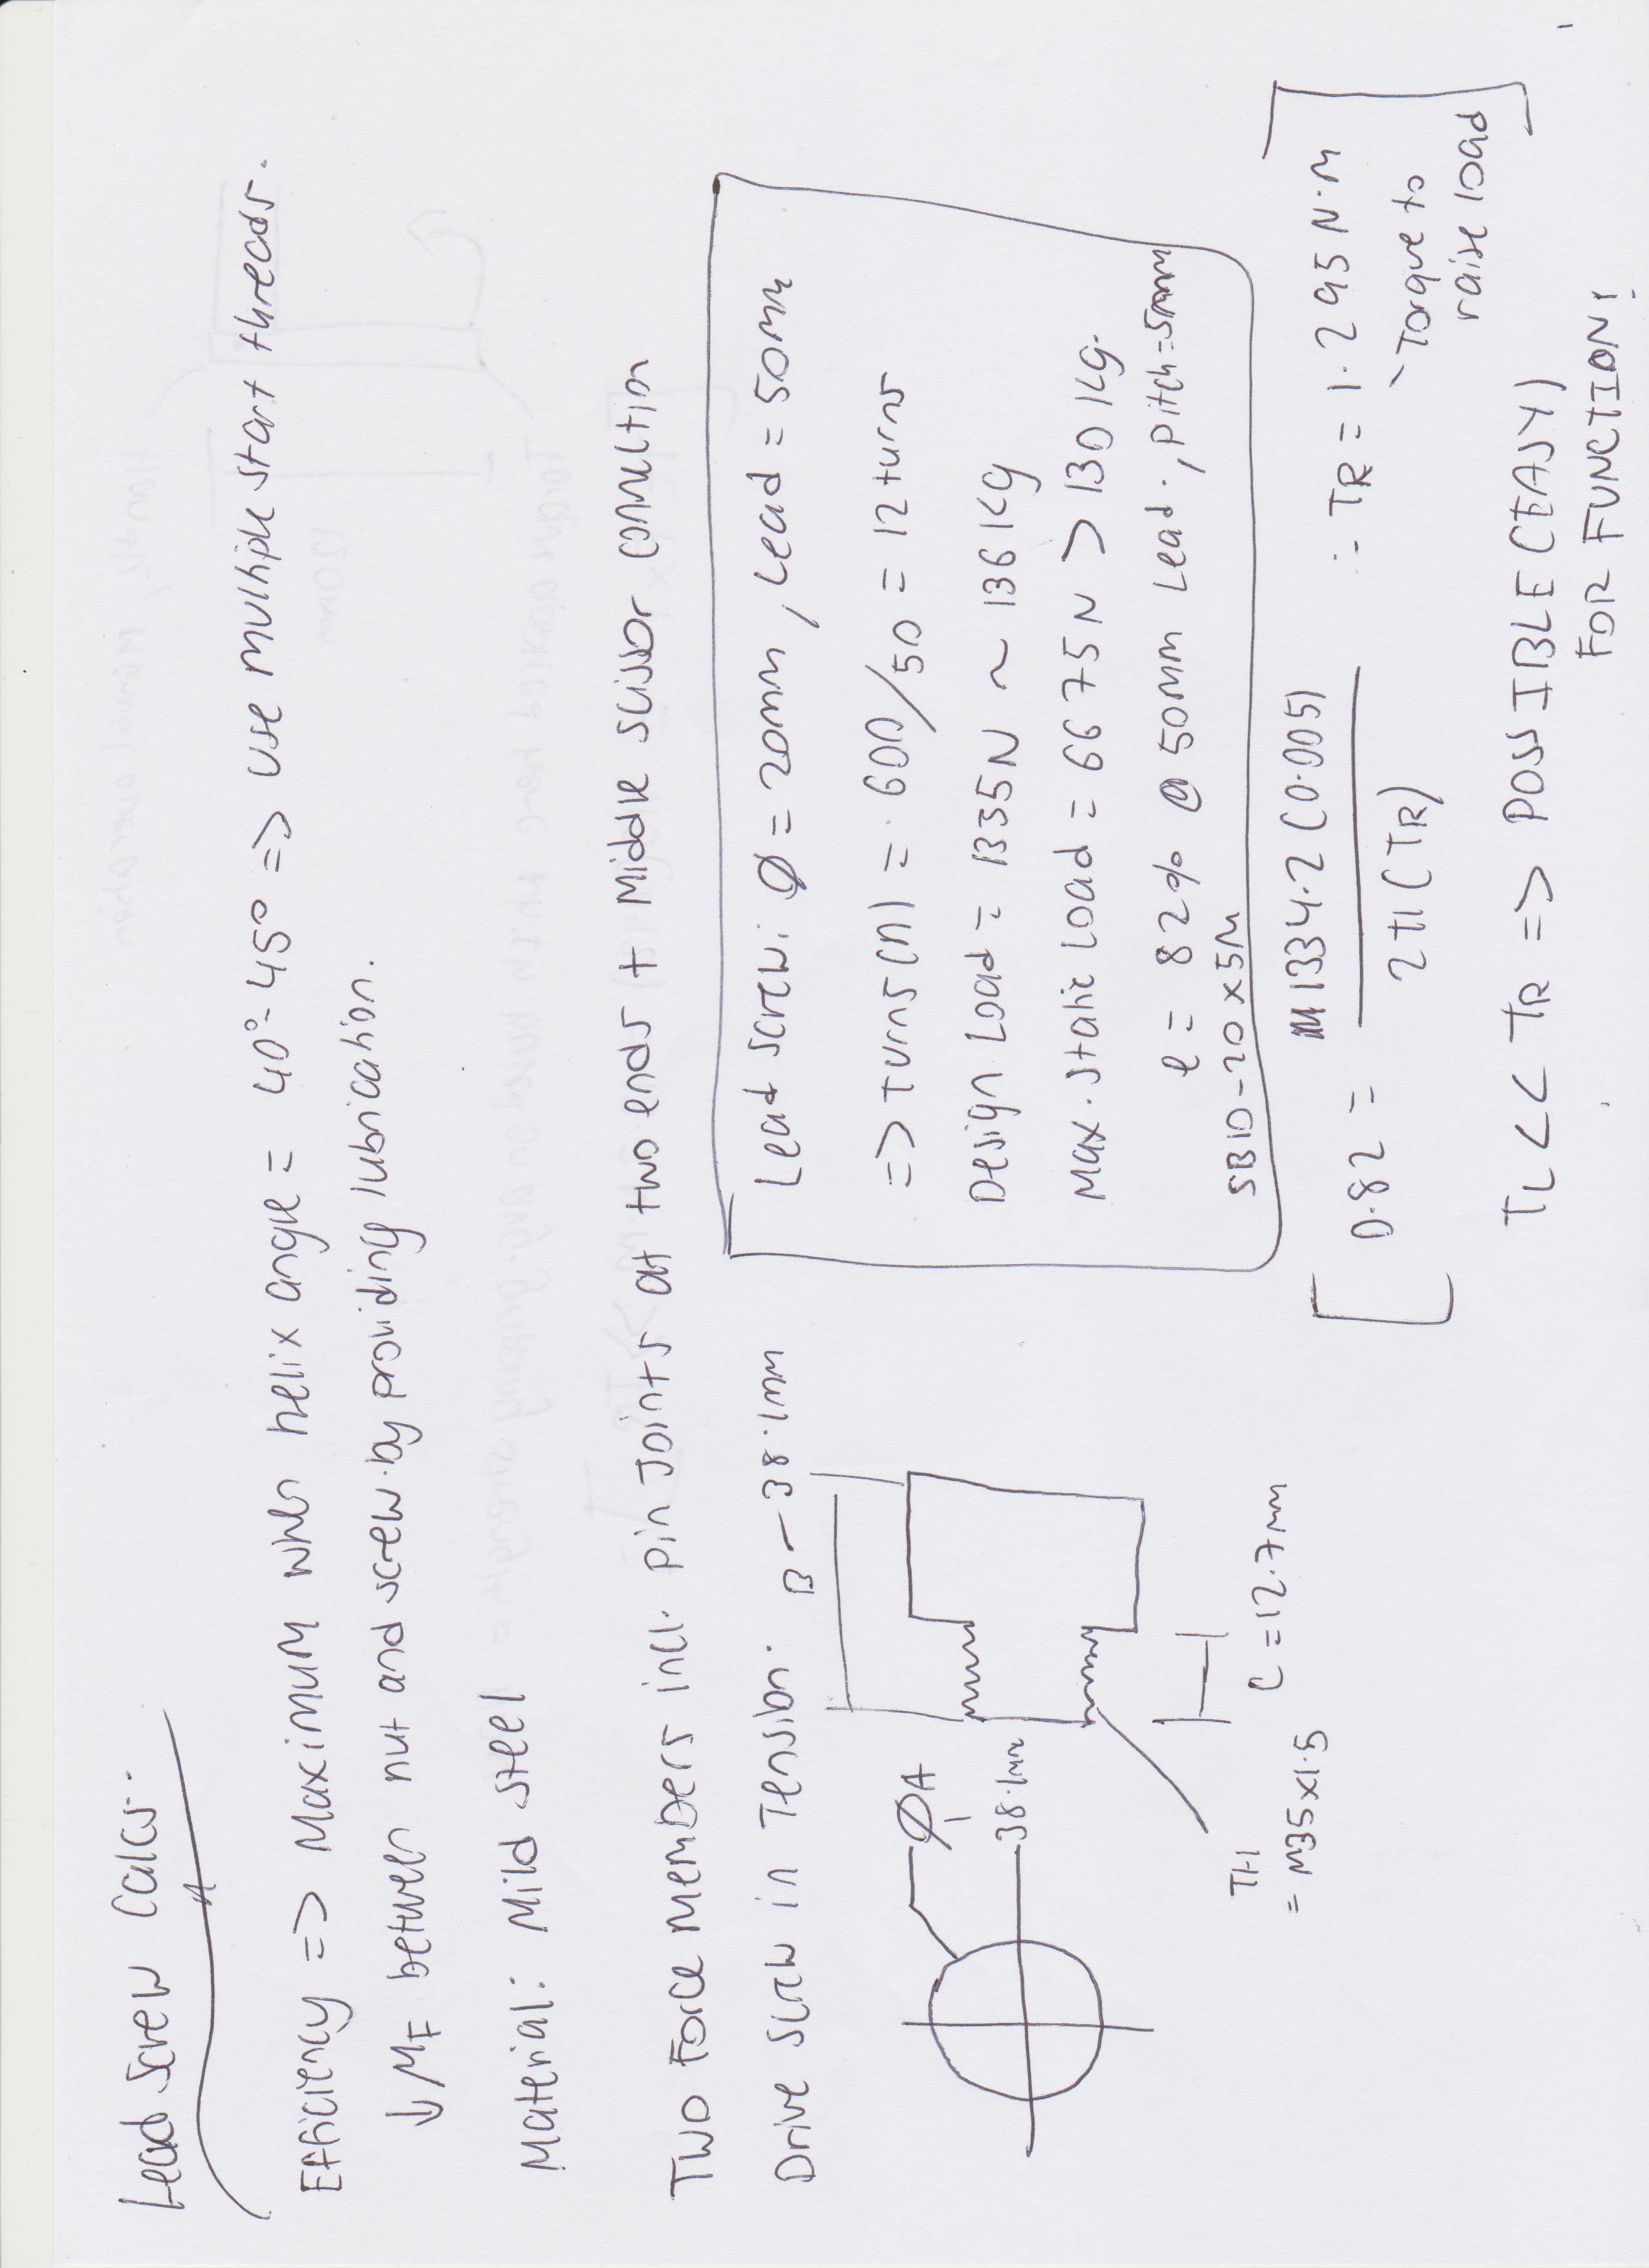 Lead Screw Calcs.
Efficiency => Maximum when helix angle = 40°-45° => use multiple start threads.
↓ MF between nut and screw by providing lubrication.
Material: Mild steel
Two Force members incl. pin Joints at two ends + Middle scissor connection
Drive screw in Tension.
B - 38.1mm
ØA
38.1mm
TH
= M35x1.5
C = 12.7mm
Lead screw: Ø = 20mm, Lead = 50mm
=> Turns (n) = 600/50 = 12 turns
Design Load = 1335N ~ 136 kg
Max. Static Load = 6675N > 130 kg.
e = 82% @ 50mm Lead., pitch=5mm
SB10-20x5M
[ 0.82 = 1334.2 (0.005) / 2π(TR) ∴ TR = 1.295 N.m ]
Torque to
raise load
TL << TR => POSSIBLE (EASY)
FOR FUNCTION!